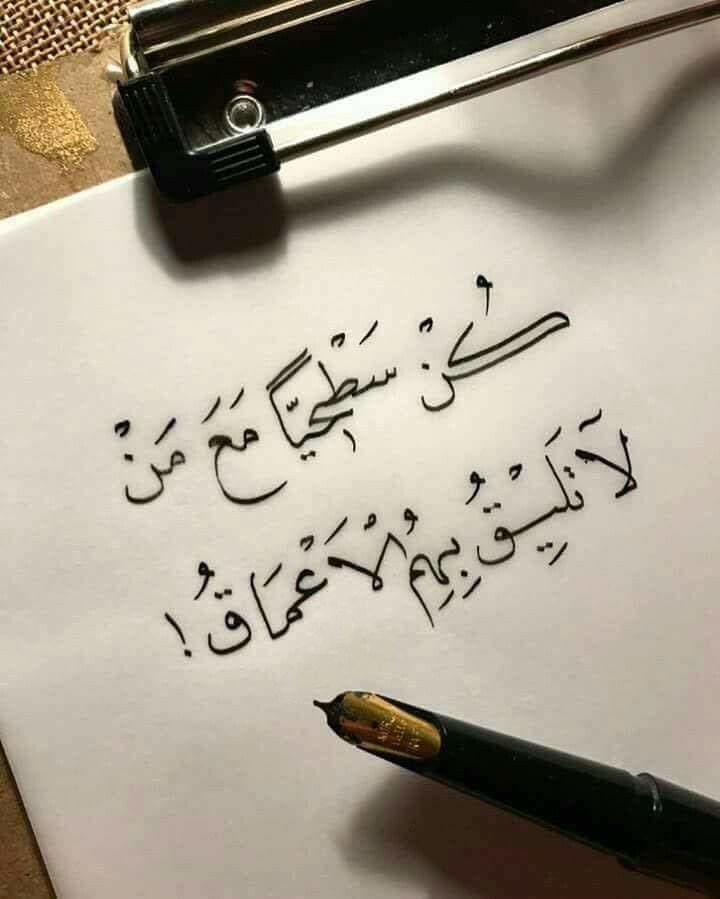 كُنْ سَطْحِيّاً مَعَ مَنْ
لَا تَلِيْقُ بِهِمُ الْأَعْمَاقُ!